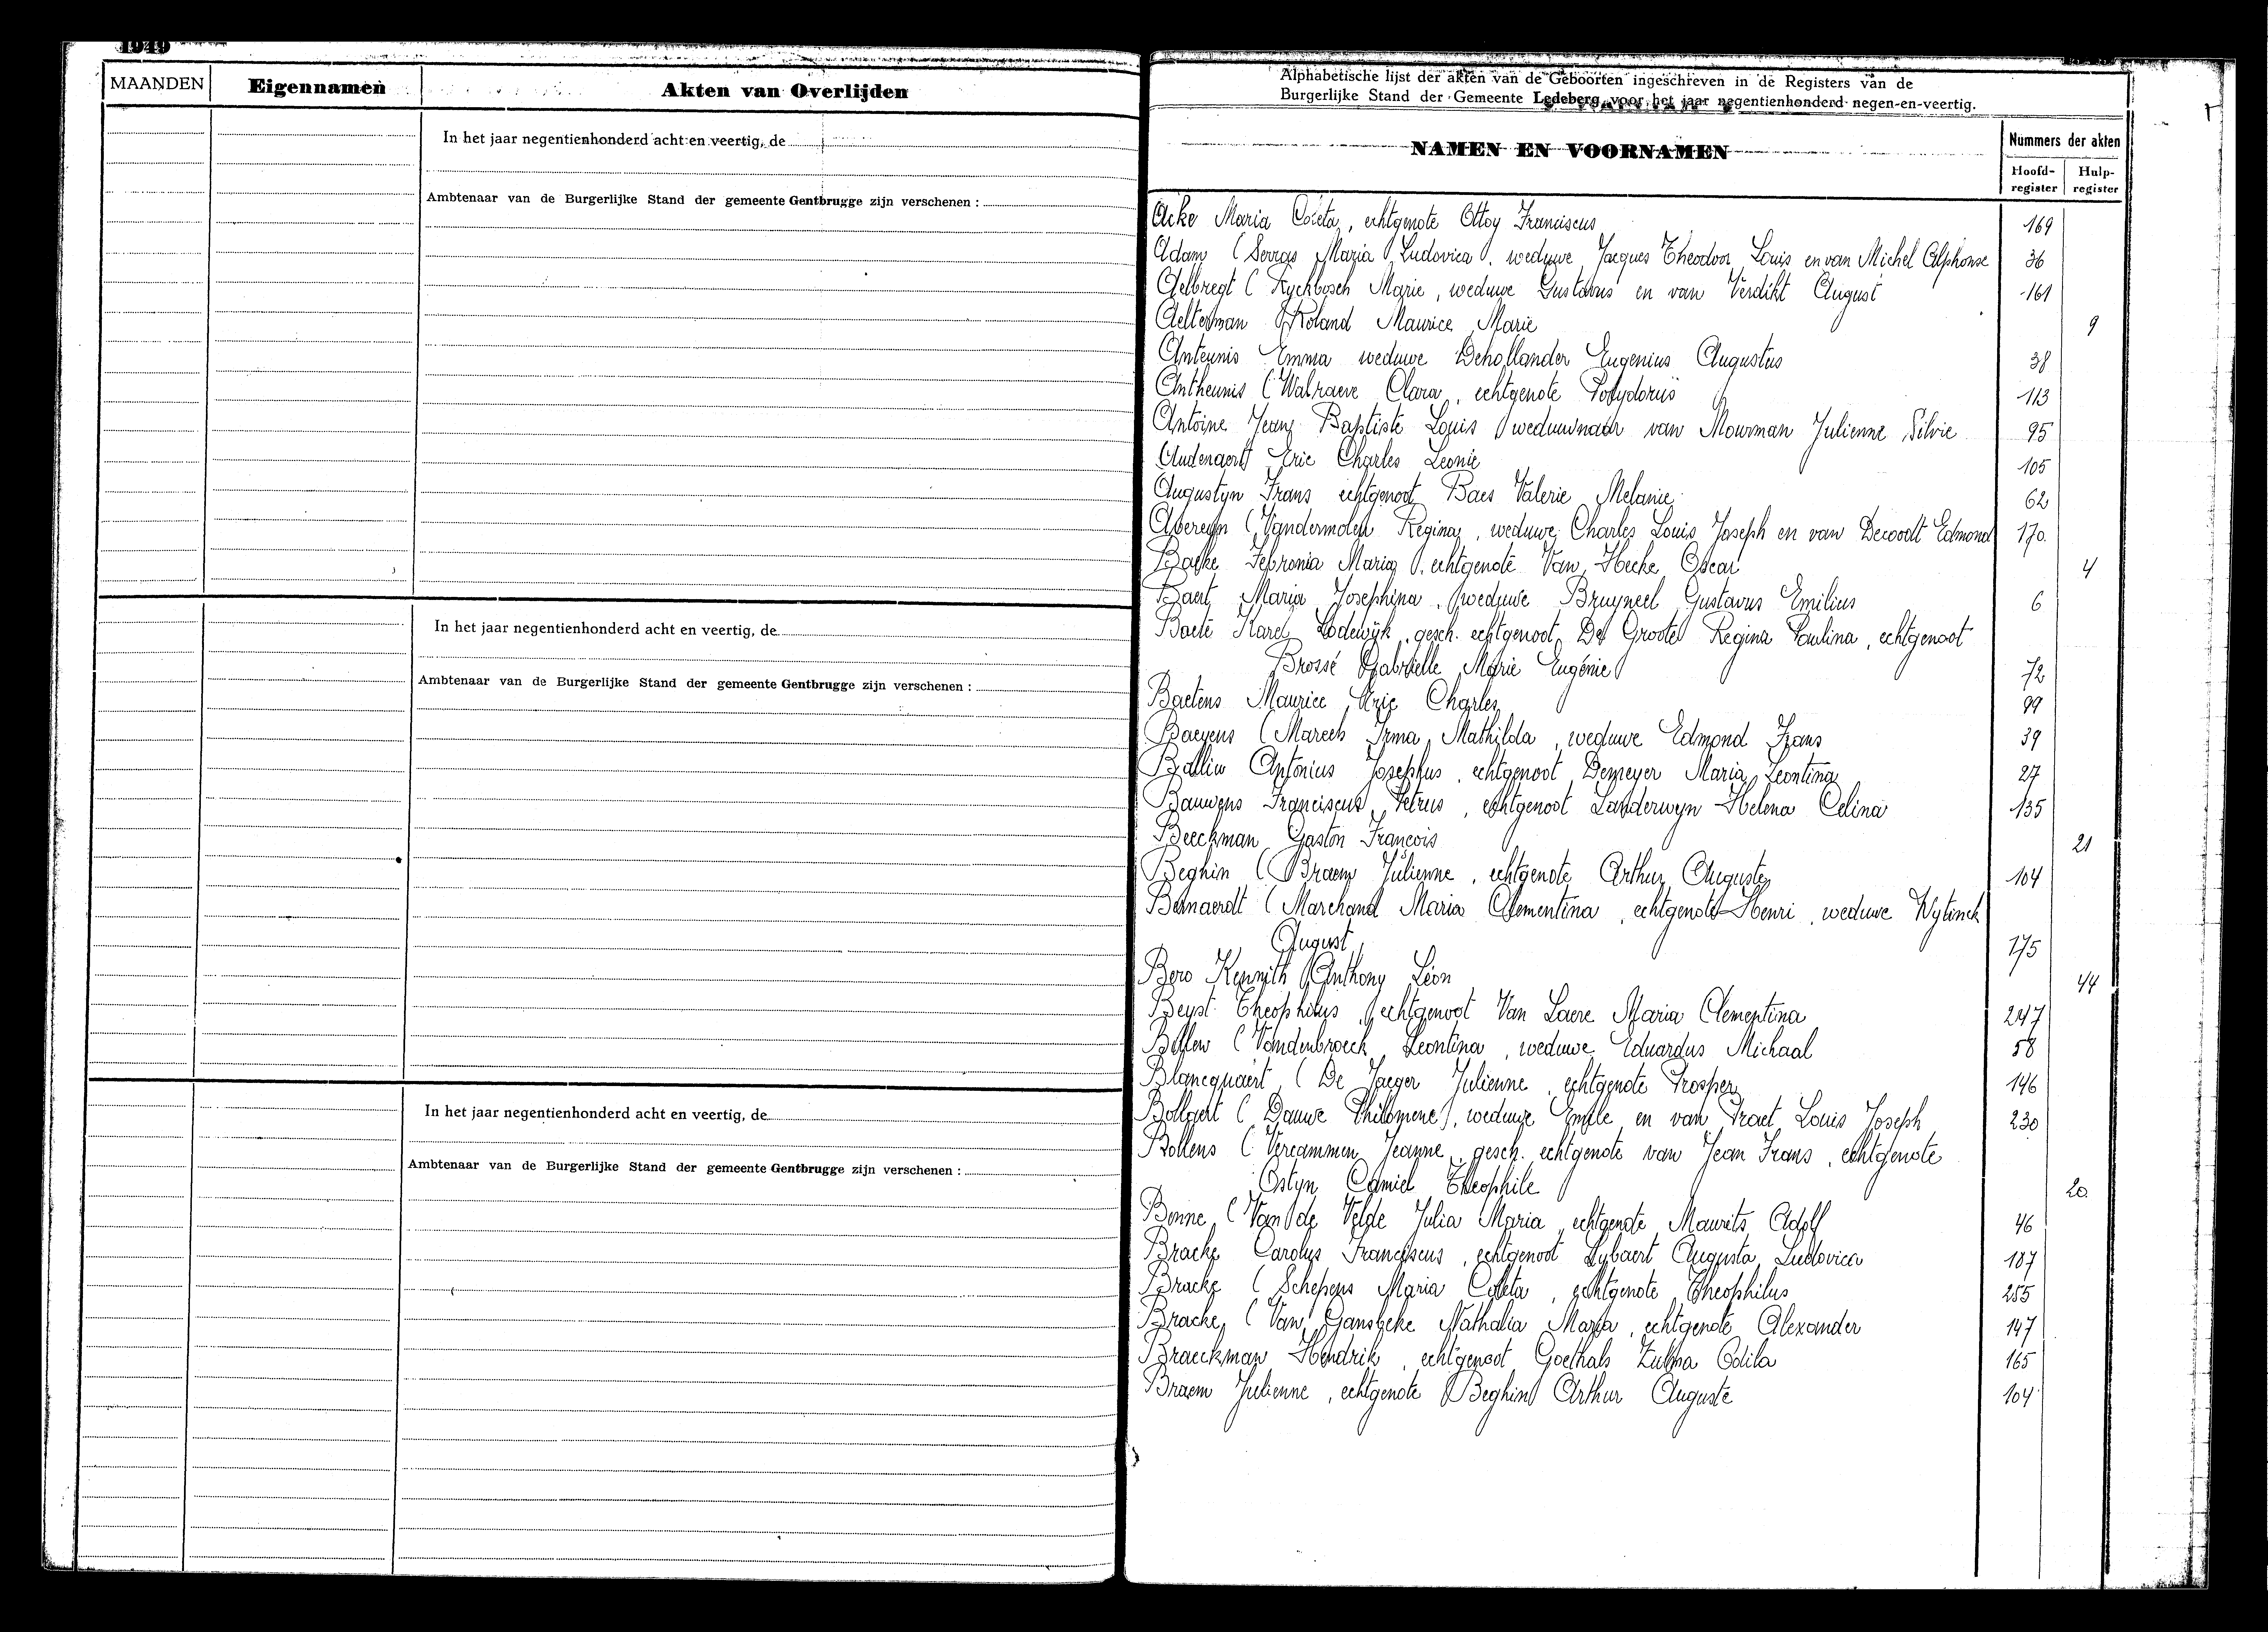 1949
MAANDEN
Eigennamen
Akten van Overlijden
In het jaar negentienhonderd acht en veertig, de
Ambtenaar van de Burgerlijke Stand der gemeente Gentbrugge zijn verschenen :
In het jaar negentienhonderd acht en veertig, de
Ambtenaar van de Burgerlijke Stand der gemeente Gentbrugge zijn verschenen :
In het jaar negentienhonderd acht en veertig, de
Ambtenaar van de Burgerlijke Stand der gemeente Gentbrugge zijn verschenen :
Alphabetische lijst der akten van de Geboorten ingeschreven in de Registers van de
Burgerlijke Stand der Gemeente Ledeberg voor het jaar negentienhonderd negen-en-veertig.
NAMEN EN VOORNAMEN
Nummers der akten
Hoofd-register Hulp-register
Acke Maria Coleta, echtgenote Ottoy Franciscus 169
Adam (Serras Maria Ludovica), weduwe Jacques Theodoor Louis en van Michel Alphonse 36
Aelbregt (Ryckbosch Marie, weduwe Gustavus en van Verdikt August 161
Aelterman Roland Maurice Marie 9
Anteunis Emma weduwe Dehollander Eugenius Augustus 38
Antheunis (Walraeve Clara, echtgenote Polydorus 113
Antoine Jean Baptiste Louis weduwnaar van Mourman Julienne Silvie 95
Audenaert Eric Charles Leonie 105
Augustyn Frans echtgenoot Baes Valerie Melanie 62
Avereyn (Vandermolen Regina, weduwe Charles Louis Joseph en van Dewoolt Edmond 170
Backe Febronia Maria, echtgenote Van Hecke Oscar 4
Baert Maria Josephina, weduwe Bruyneel Gustavus Emilius 6
Baete Karel Lodewijk, gesch. echtgenoot De Groote Regina Paulina, echtgenoot
Brossé Gabrielle Marie Eugénie 72
Baetens Maurice Eric Charles 99
Baeyens (Mareels Irma Mathilda, weduwe Edmond Frans 39
Balliu Antonius Josephus, echtgenoot Demeyer Maria Leontina 27
Bauwens Franciscus Petrus, echtgenoot Landerwyn Helena Celina 135
Beeckman Gaston François 21
Beghin (Braem Julienne, echtgenote Arthur Auguste 104
Bernaerdt (Marchand Maria Clementina, echtgenote Henri, weduwe Wytinck
August 175
Bero Kennith Anthony Léon 44
Beyst Theophilus, echtgenoot Van Laere Maria Clementina 247
(Vandenbroeck Leontina, weduwe Eduardus Michaal 58
Blancquaert (De Jaeger Julienne, echtgenote Prosper 146
Bollaert (Dauwe Philomene), weduwe Emile en van Praet Louis Joseph 230
Bollens (Vercammen Jeanne, gesch. echtgenote van Jean Frans, echtgenote
Ostyn Camiel Theophile 20
Bonne (Van de Velde Julia Maria, echtgenote Maurits Adolf 46
Bracke Carolus Franciscus, echtgenoot Lybaert Augusta Ludovica 187
Bracke (Schepens Maria Coleta, echtgenote Theophilus 255
Bracke (Van Gansbeke Nathalia Maria, echtgenote Alexander 147
Braeckman Hendrik, echtgenoot Goethals Zulma Odila 165
Braem Julienne, echtgenote Beghin Arthur Auguste 104